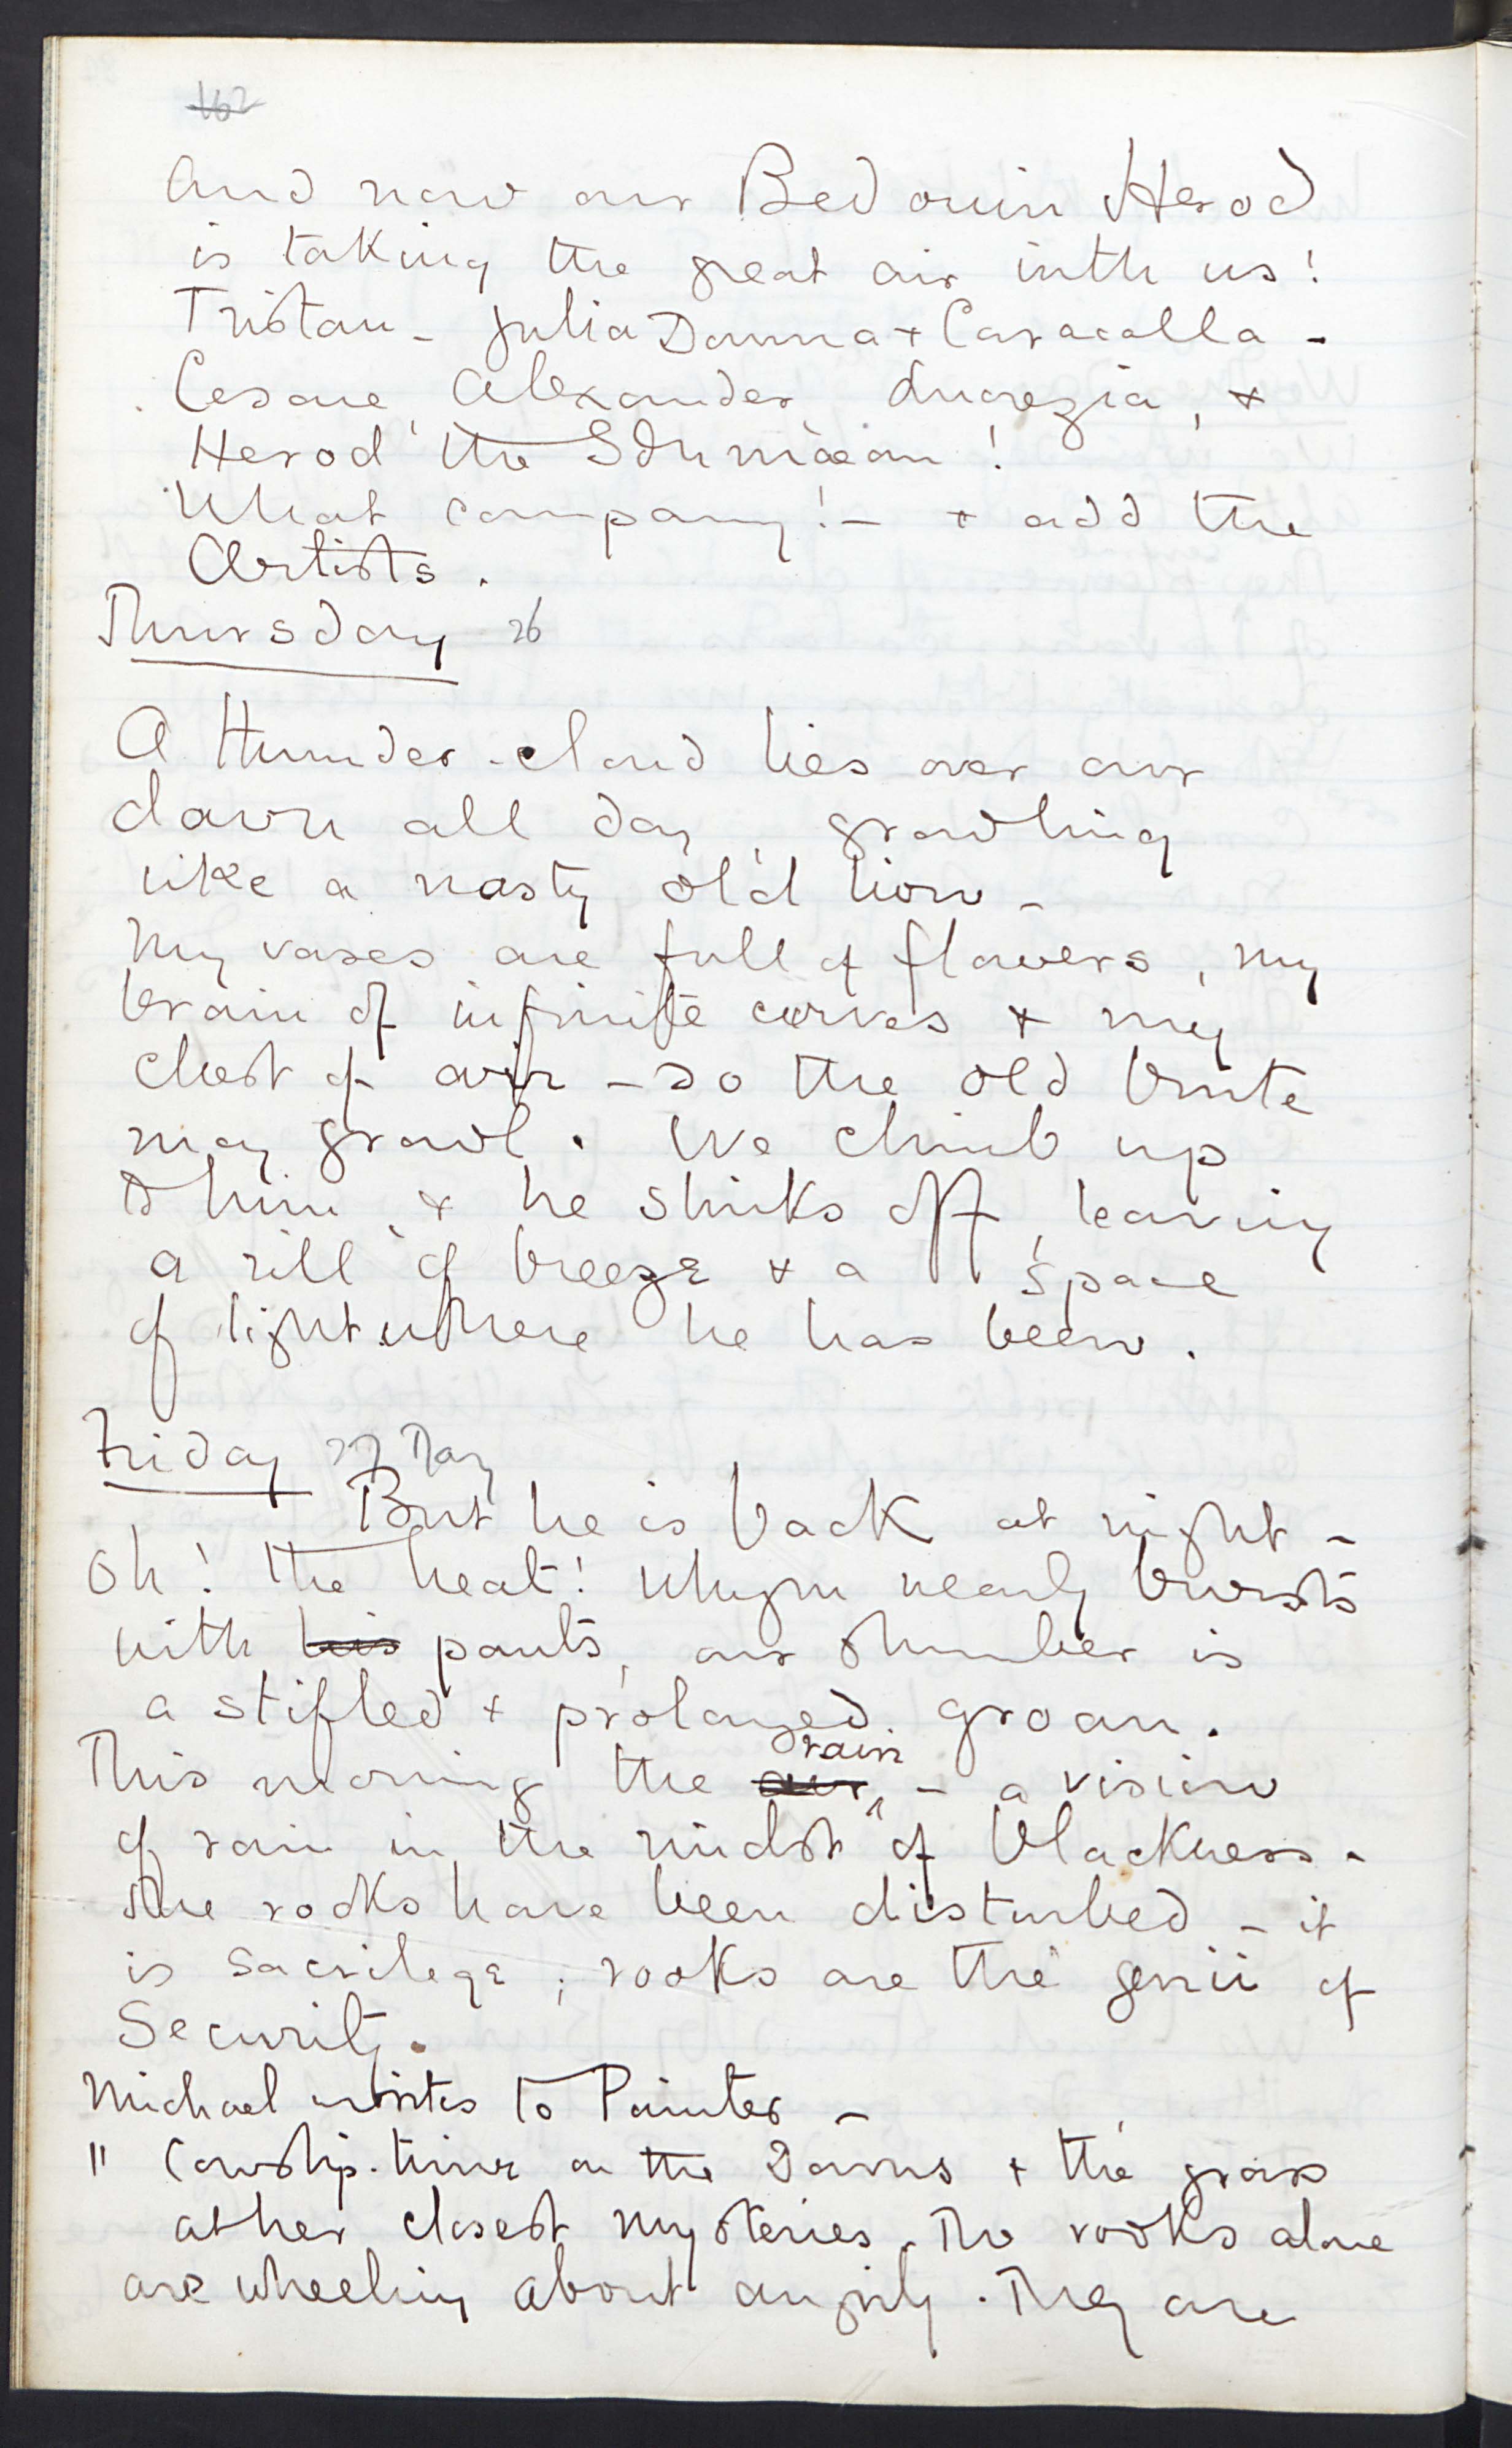 162
And now our Bedouin Herod
is taking the great air with us!
Tristan - Julia Domna + Caracalla -
Cesare, Alexander, Lucrezia, +
Herod the Idumaean!
What company! - + add the
Artists.
Thursday 26
A Thunder-cloud lies over our
down all day, growling
like a nasty old lion -
My vases are full of flowers, my
brain of infinite curves + my
chest of air - so the old brute
may growl. We climb up
to him, + he slinks off, leaving
a rill of breeze + a space
of light where he has been.
Friday 27 May
But he is back at night -
Oh! the heat! Whym nearly bursts
with his pants, our slumber is
a stifled + prolonged groan.
This morning the air rain - a vision
of rain in the midst of blackness -
The rooks have been disturbed - it
is sacrilege; rooks are the genii of
Security.
Michael writes to Painter -
" Cowslip-time on the Downs + the grass
at her closest mysteries. The rooks alone
are wheeling about angrily. They are